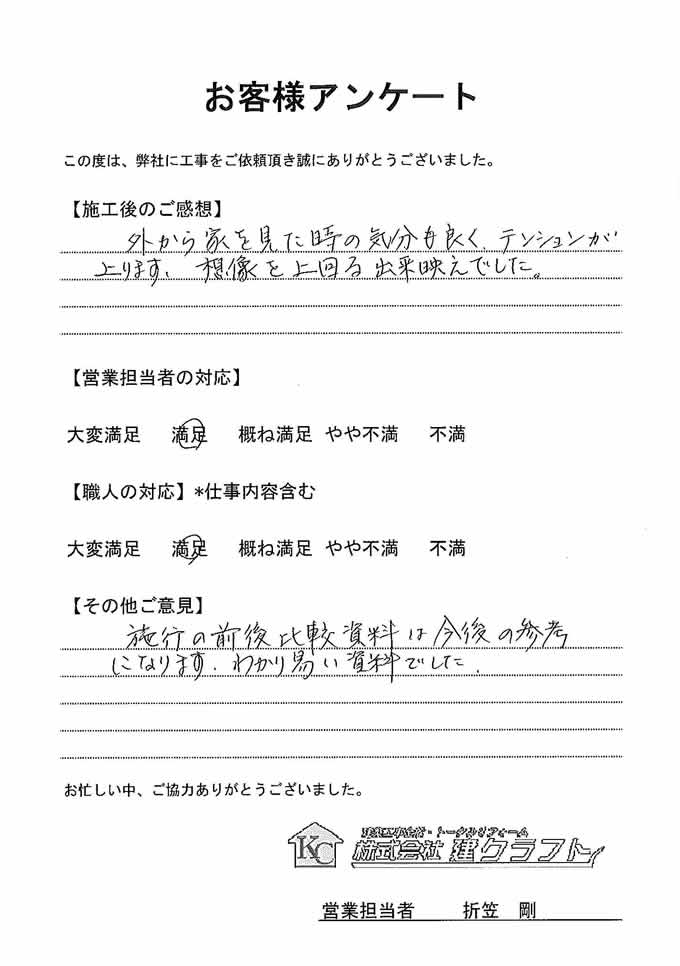 お客様アンケート
この度は、弊社に工事をご依頼頂き誠にありがとうございました。
【施工後のご感想】
外から家を見た時の気分も良く、テンションが
上ります、想像を上回る出来映えでした。
【営業担当者の対応】
大変満足 満足 概ね満足 やや不満 不満
【職人の対応】*仕事内容含む
大変満足 満足 概ね満足 やや不満 不満
【その他ご意見】
施行の前後比較資料は今後の参考
になります。わかり易い資料でした.
お忙しい中、ご協力ありがとうございました。
KC
トータルリフォーム
株式会社 建クラフト
営業担当者 折笠 剛